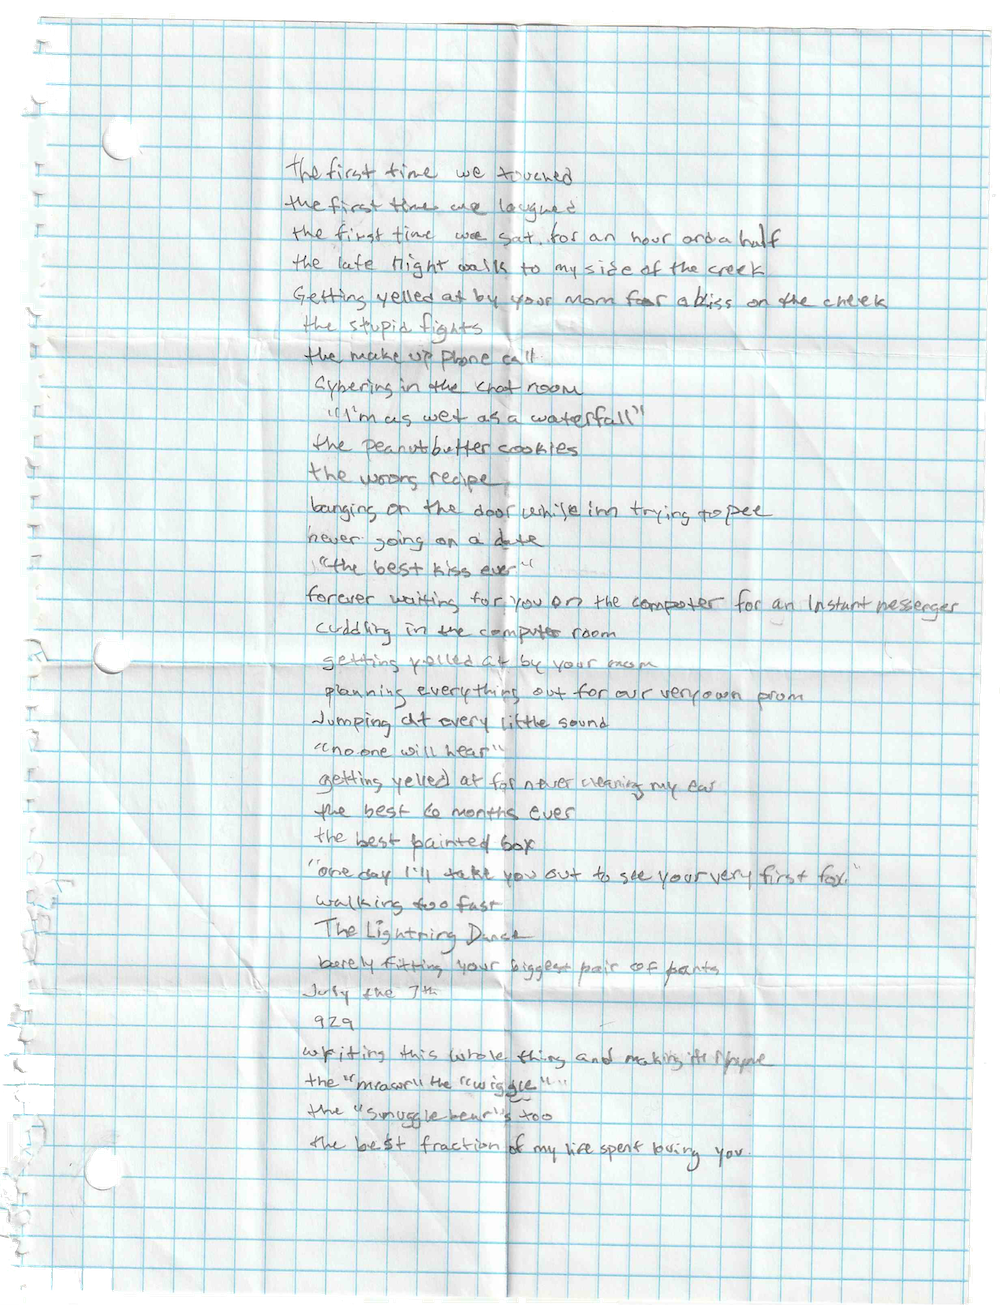 the first time we touched
the first time we laughed
the first time we sat for an hour and a half
the late night walks to my side of the creek
Getting yelled at by your mom for a kiss on the cheek
the stupid fights
the make up phone call
Cybering in the chat room
"I'm as wet as a waterfall"
the peanutbutter cookies
the wrong recipe
banging on the door while im trying to pee
never going on a date
"the best kiss ever"
forever waiting for you on the computer for an Instant messenger
cuddling in the computer room
getting yelled at by your mom
planning everything out for our very own prom
Jumping at every little sound
"no one will hear"
getting yelled at for never cleaning my ear
the best 6 months ever
the best painted box
"one day I'll take you out to see your very first fox."
walking too fast
The Lightning Dance
barely fitting your biggest pair of pants
July the 7th
929
writing this whole thing and making it rhyme
the "mraow" the "wiggle"
the "snuggle bear"s too
the best fraction of my life spent loving you